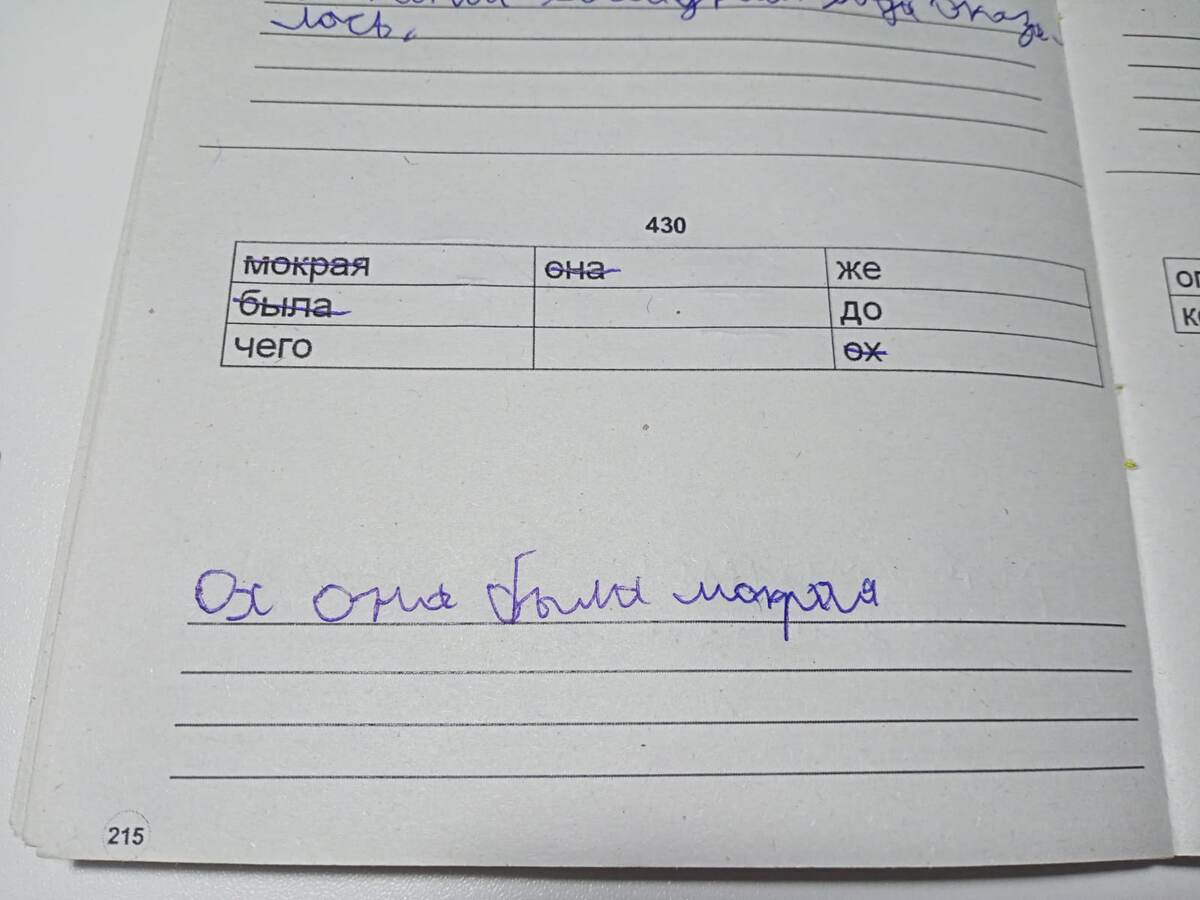 лось.
430
мокрая она же
была до
чего ох
Ох она была мокрая
215